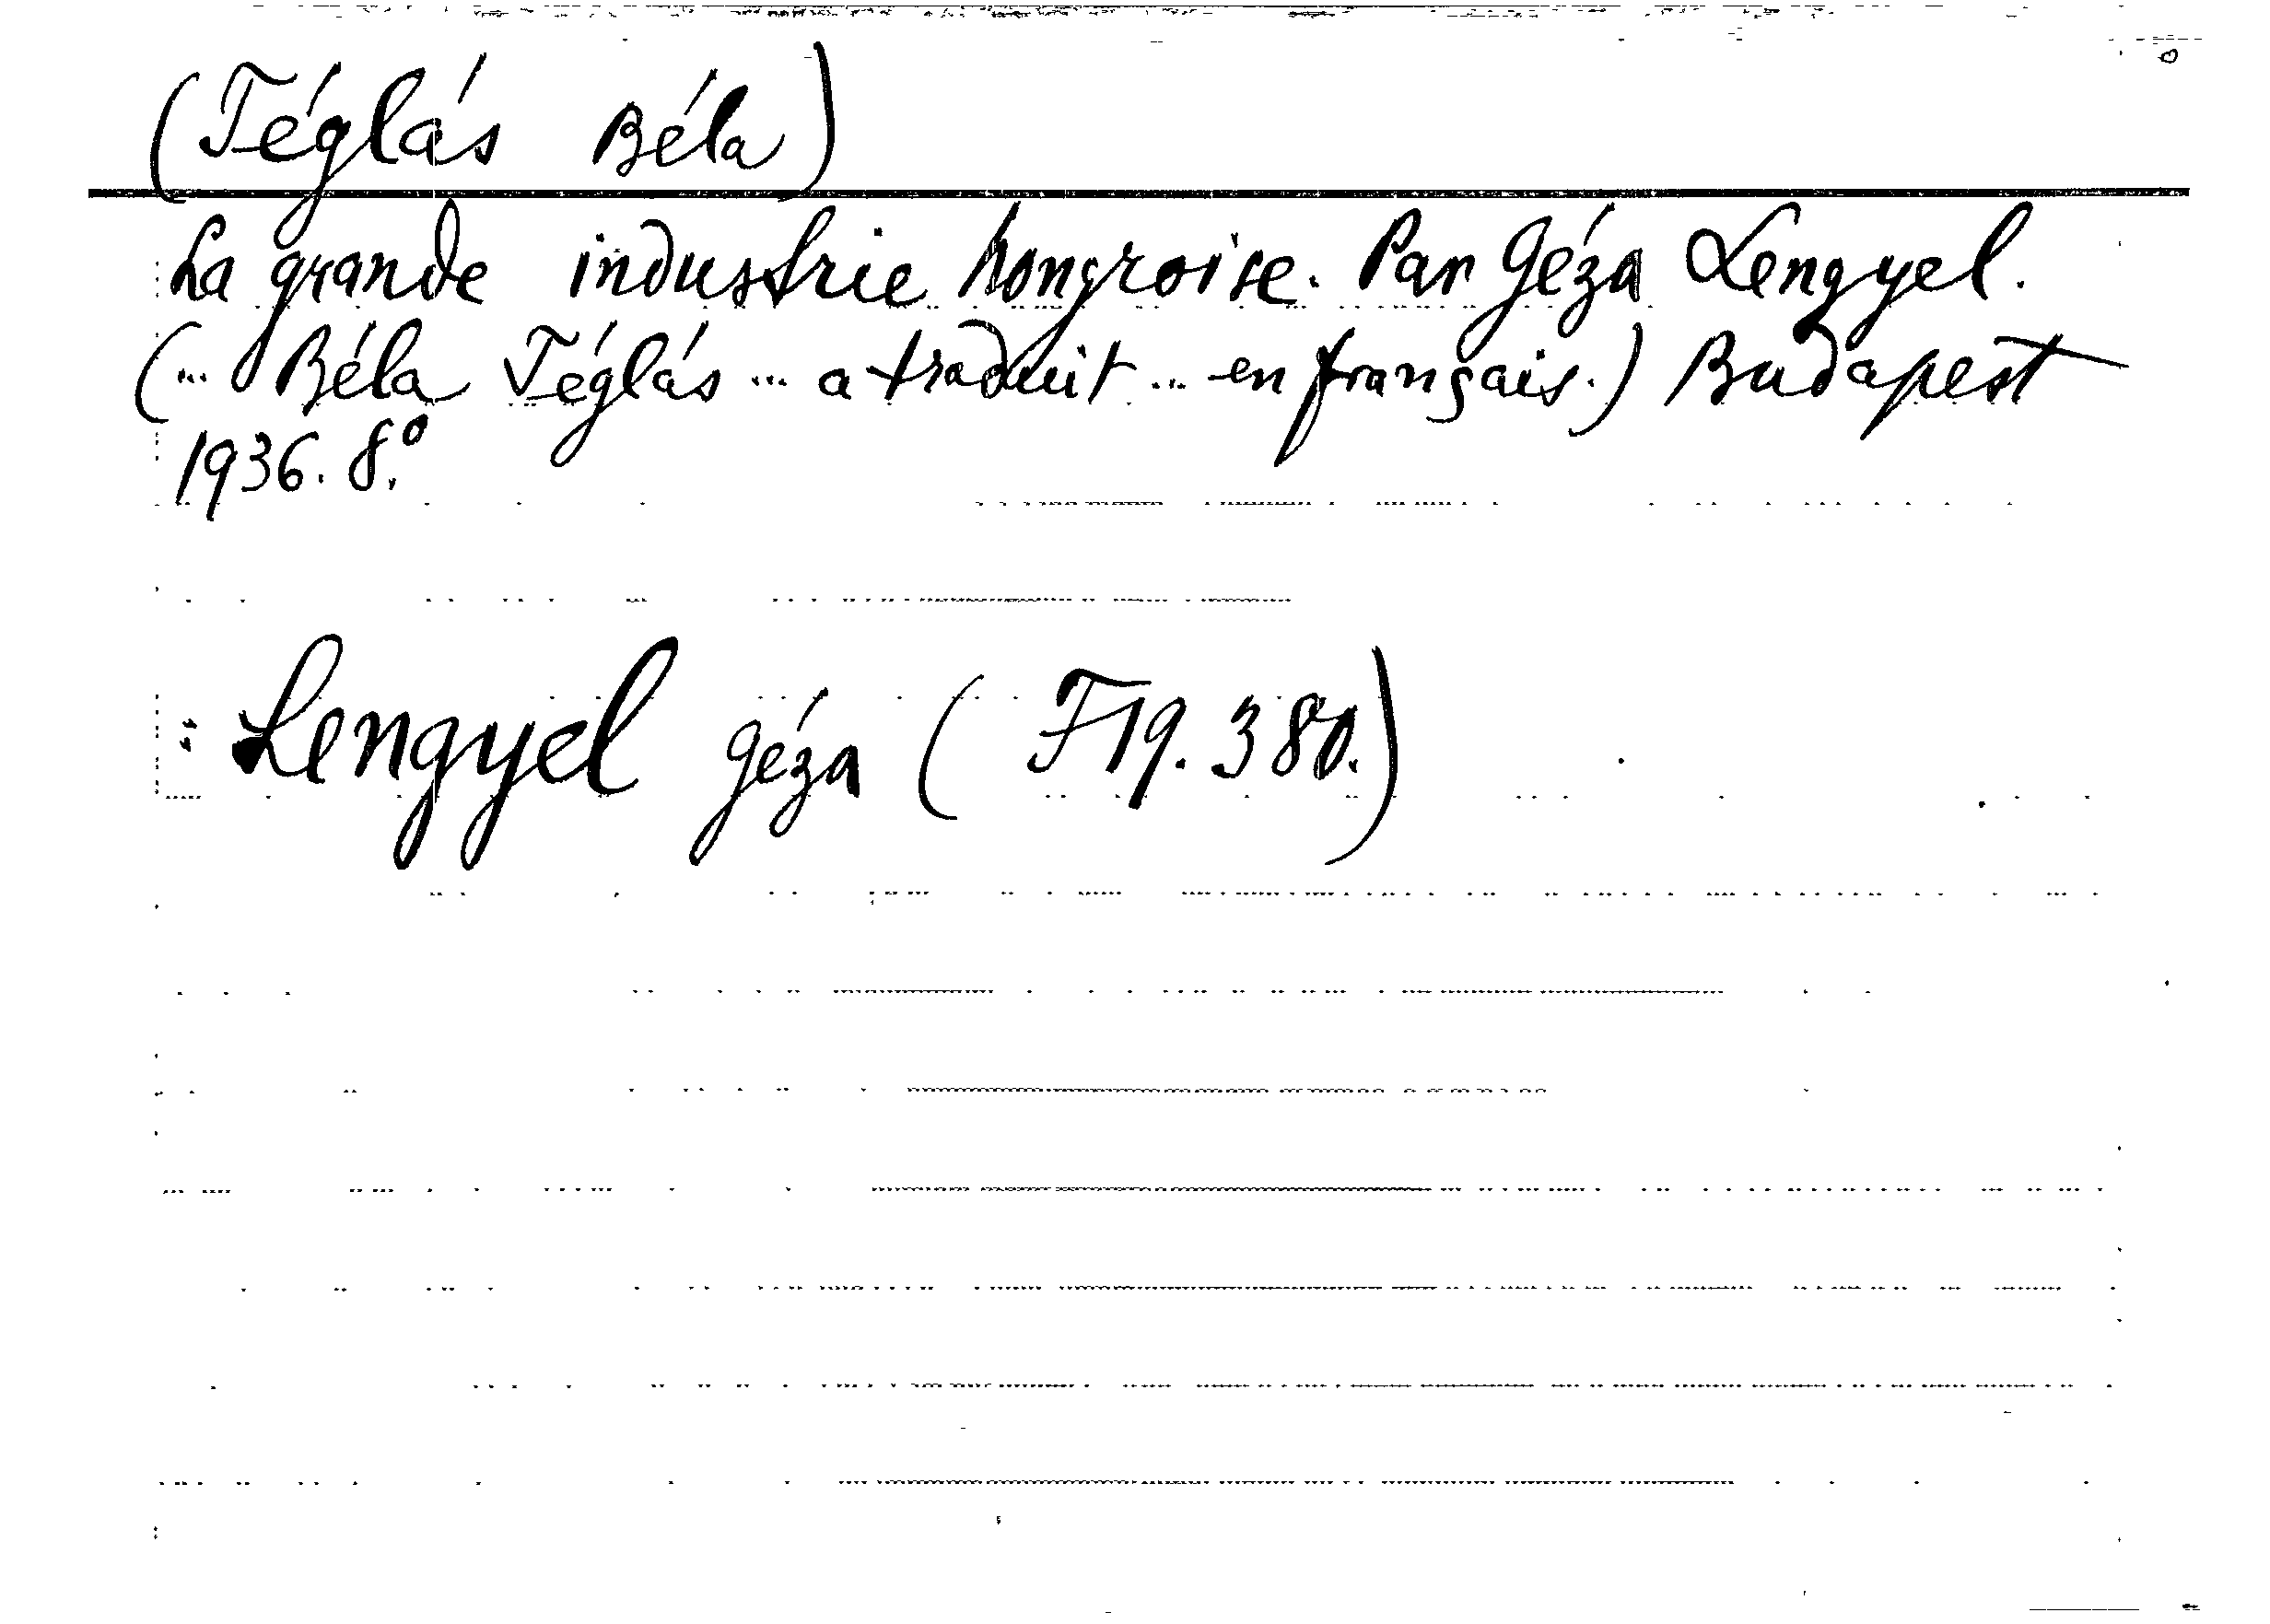 (Téglás Béla)
La grande industrie hongroise. Par Géza Lengyel.
(... Béla Téglás ... a traduit ... en français.) Budapest
1936. 8.°
: Lengyel Géza ( F 19. 380.)